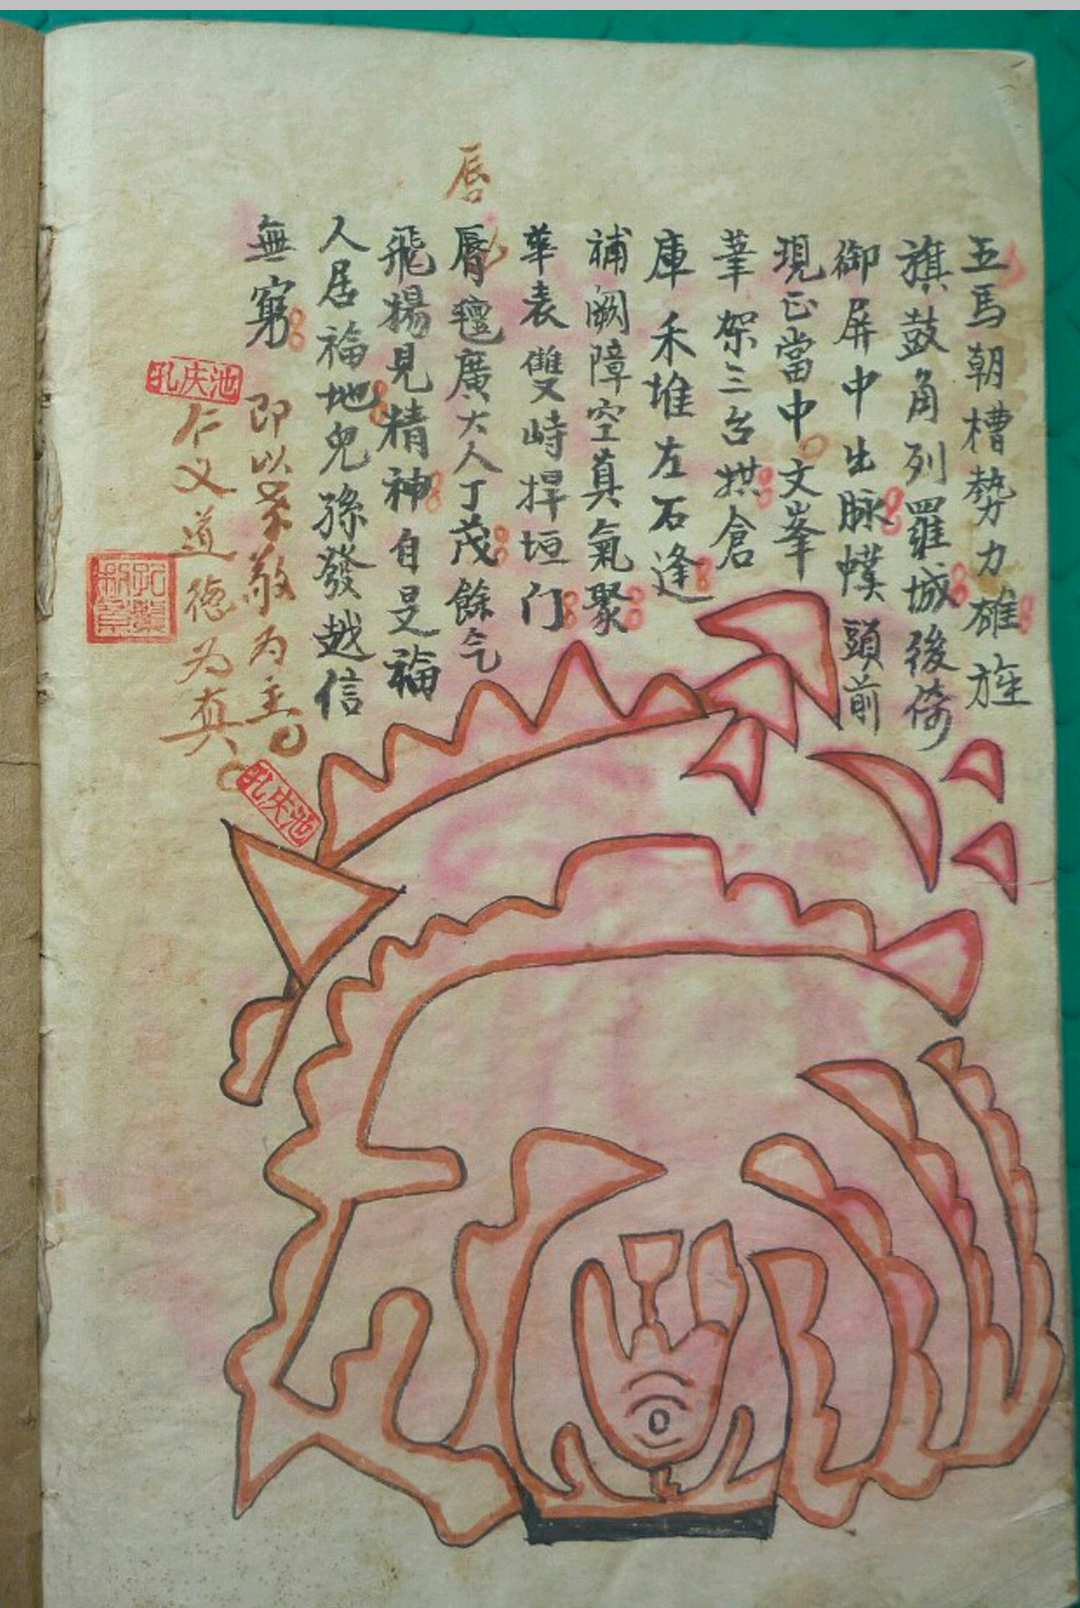 五馬朝槽勢力雄旌
旗鼓角列羅城後倚
御屏中出脉幞頭前
現正當中文峯
筆架三台拱倉
庫禾堆左右逢
補闕障空真氣聚
華表雙峙捍垣门
唇
脣氊廣大人丁茂餘气
飛揚見精神自是福
人居福地兒孫發越信
無窮
即以恭敬为主
仁义道德为真
孔庆池
孔庆池